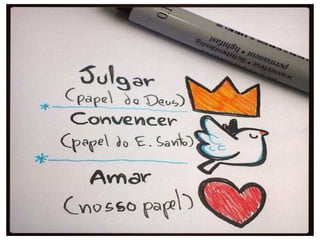 Julgar
(papel de Deus)
Convencer
(papel do E. Santo)
Amar
(nosso papel)
permanent • lightfast